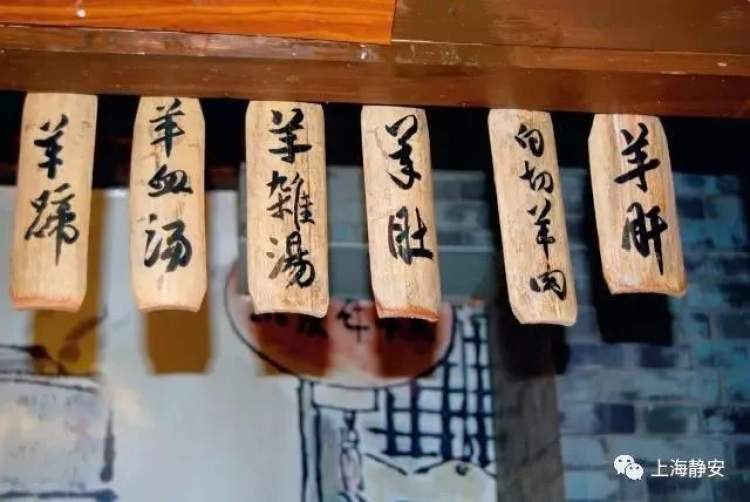 羊蹄
羊血汤
羊雜湯
羊肚
白切羊肉
羊肝
上海静安